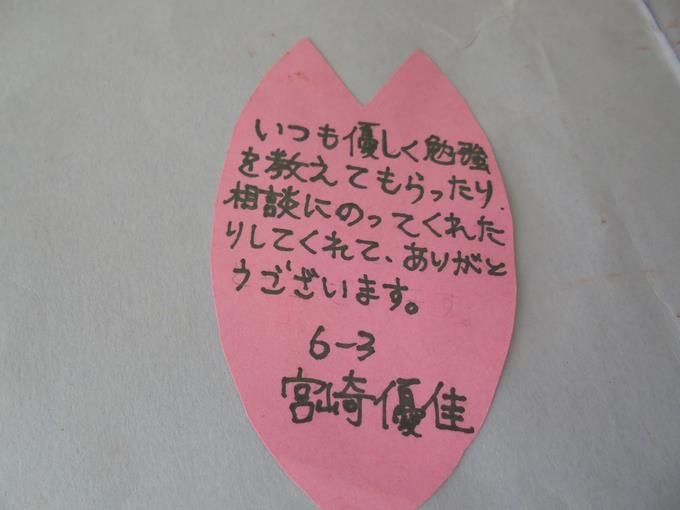 いつも優しく勉強
を教えてもらったり
相談にのってくれた
りしてくれて、ありがと
うございます。
6-3
宮崎優佳